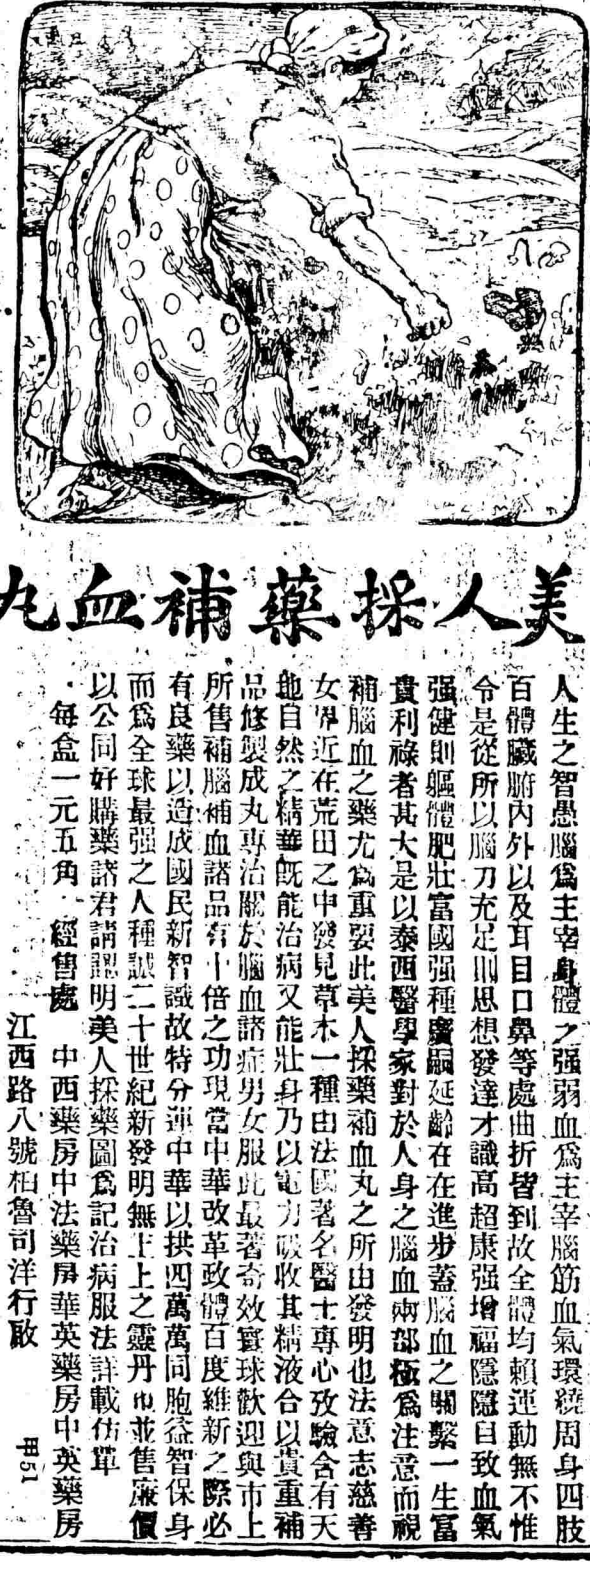 美人採藥補血丸
人生之智愚腦爲主宰身體之强弱血爲主宰腦筋血氣環繞周身四肢
百體臟腑內外以及耳目口鼻等處曲折皆到故全體均賴運動無不惟
令是從所以腦力充足則思想發達才識高超康强增福隱隱自致血氣
强健則軀體肥壯富國强種廣嗣延齡在在進步蓋腦血之關繫一生富
貴利祿者甚大是以泰西醫學家對於人身之腦血兩部極爲注意而視
補腦血之藥尤爲重要此美人採藥補血丸之所由發明也法意志慈善
女界近在荒田之中發見草木一種由法國著名醫士專心攷驗含有天
地自然之精華旣能治病又能壯身乃以電力吸收其精液合以貴重補
品修製成丸專治關於腦血諸症男女服此最著奇效寰球歡迎與市上
所售補腦補血諸品有十倍之功現當中華改革政體百度維新之際必
有良藥以造成國民新智識故特分運中華以拱四萬萬同胞益智保身
而爲全球最强之人種誠二十世紀新發明無上上之靈丹也並售廉價
以公同好購藥諸君請認明美人採藥圖爲記治病服法詳載仿單
每盒一元五角 經售處 中西藥房中法藥房華英藥房中英藥房
江西路八號柏魯司洋行啟
甲51